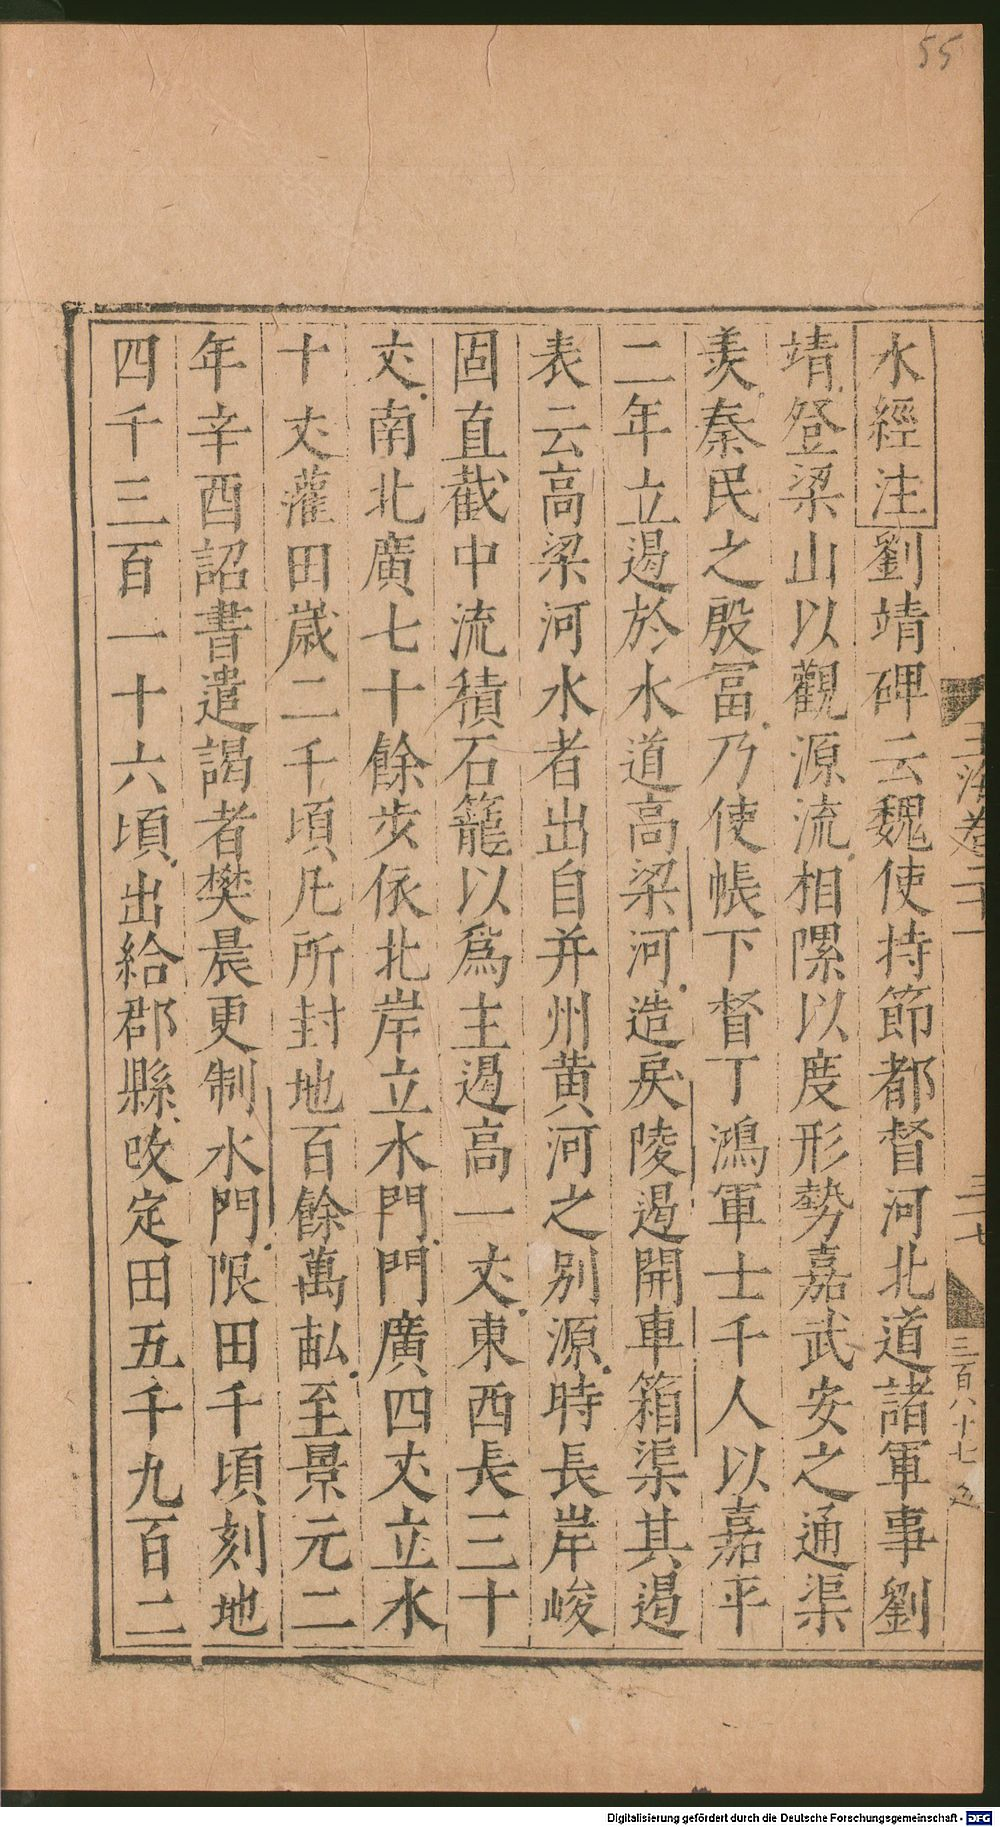 55
水經注劉靖碑云魏使持節都督河北道諸軍事劉
靖登梁山以觀源流相隰以度形勢嘉武安之通渠
羨秦民之殷冨乃使帳下督丁鴻軍士千人以嘉平
二年立遏於水道高梁河造戾陵遏開車箱渠其遏
表云高梁河水者出自并州黄河之别源時長岸峻
固直截中流積石籠以爲主遏高一𠀋東西長三十
𠀋南北廣七十餘步依北岸立水門門廣四𠀋立水
十𠀋灌田歲二千頃凡所封地百餘萬畝至景元二
年辛酉詔書遣謁者樊晨更制水門限田千頃刻地
四千三百一十六頃出給郡縣改定田五千九百二
玉海卷二十一
三十七
三百八十七
Digitalisierung gefördert durch die Deutsche Forschungsgemeinschaft - DFG